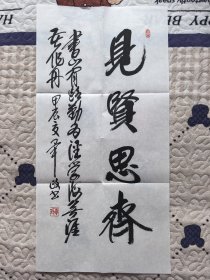 見賢思齊
書山有路勤為徑學海無涯
苦作舟甲辰夏
HAPPY BL